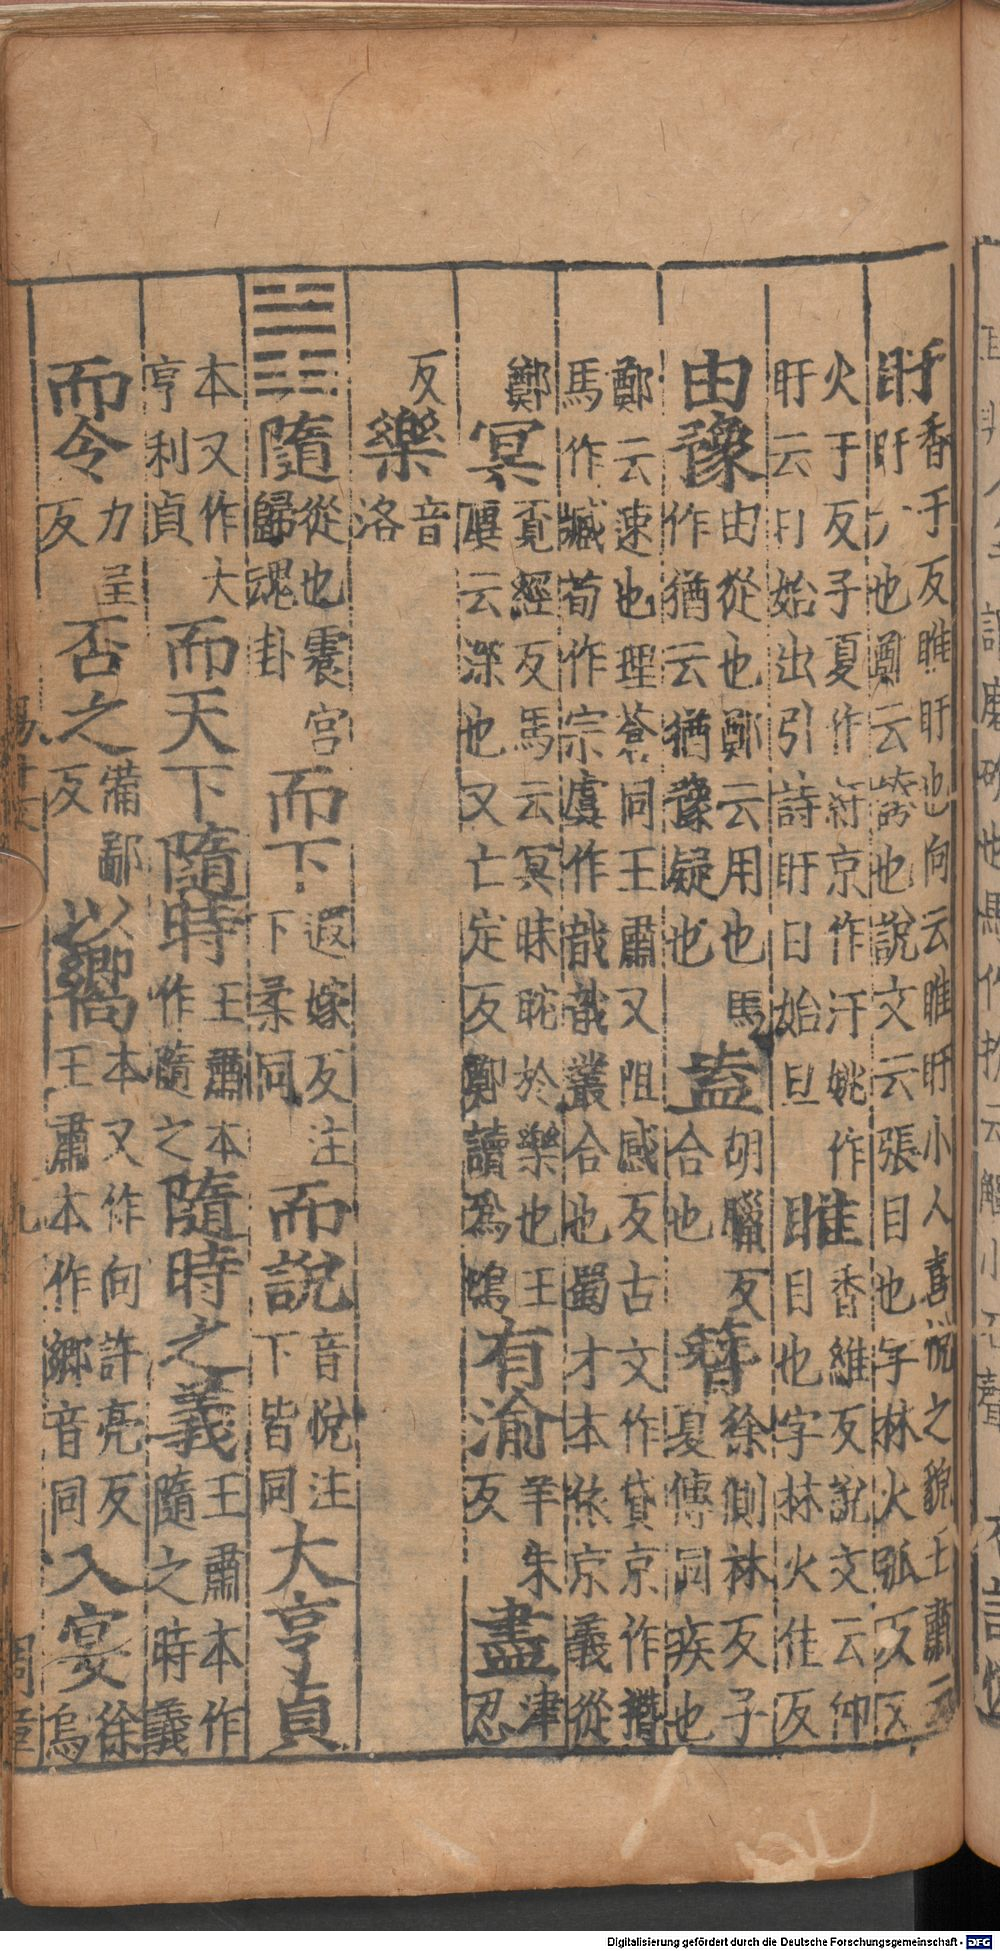 盱香于反睢盱也向云睢盱小人喜悅之貌王肅云盱大也鄭云誇也說文云張目也字林火孤反又
火于反子夏作紆京作汙姚作盱云日始出引詩盱日始旦睢香維反說文云仰目也字林火佳反
由豫由從也鄭云用也馬作猶云猶豫疑也盍胡臘反合也簪徐側林反子夏傳同疾也
鄭云速也埋蒼同王肅又阻感反古文作貸京作撍馬作臧荀作宗虞作戠戠叢合也蜀才本依京義從
鄭冥覓經反馬云冥昧眈於樂也王廙云深也又亡定反鄭讀爲鳴有渝羊朱反盡津忍
反樂音洛
䷐隨從也震宮歸魂卦而下遐嫁反注下柔同而說音悅注下皆同大亨貞
本又作大亨利貞而天下隨時王肅本作隨之隨時之義王肅本作隨之時義
而令力呈反否之備鄙反以嚮本又作向許亮反王肅本作鄉音同入宴徐烏
Digitalisierung gefördert durch die Deutsche Forschungsgemeinschaft - DFG